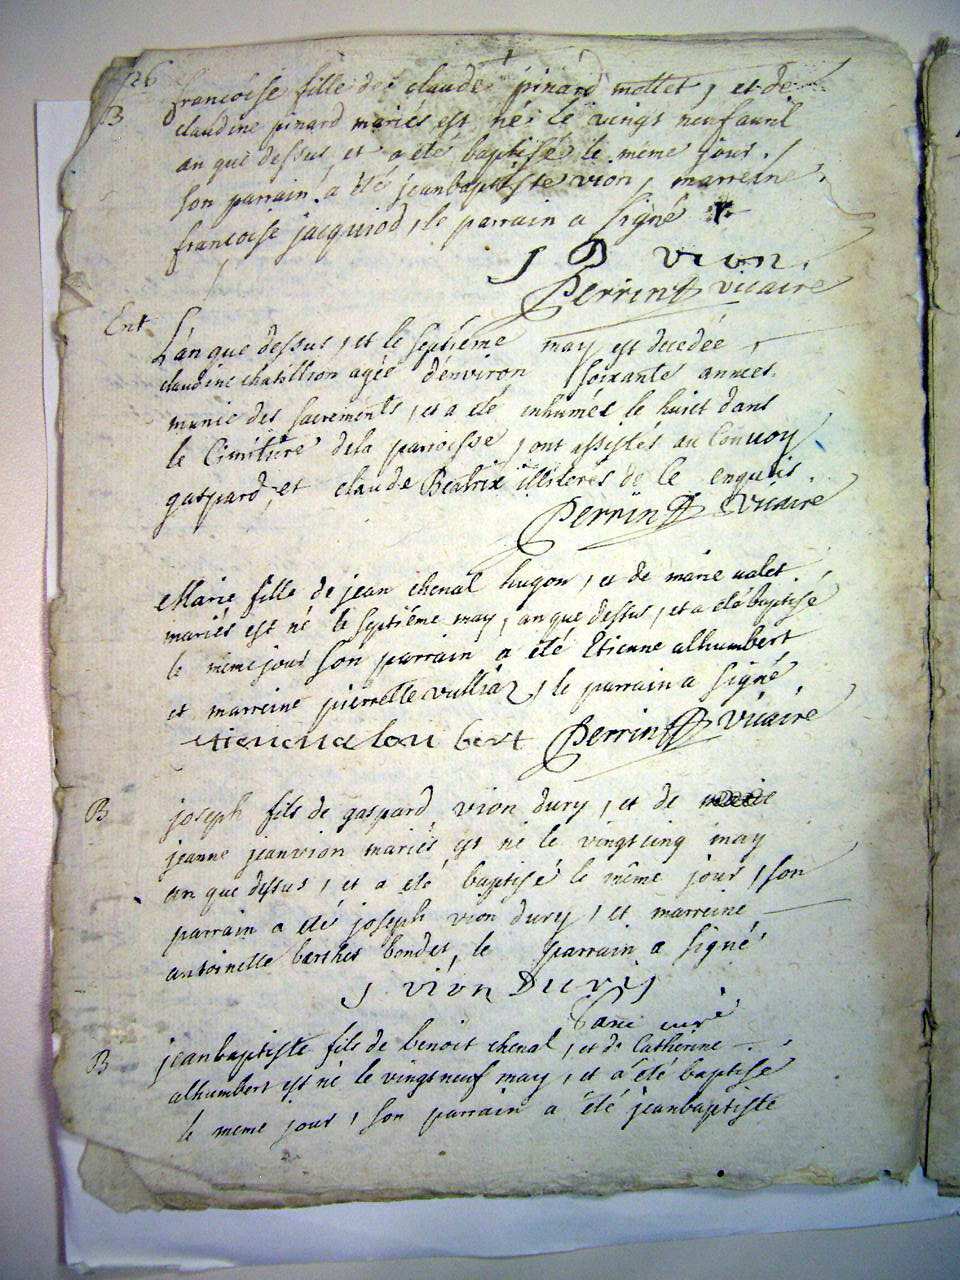 126
francoise fille de claude pinard mottet, et de
B
claudine pinard mariés est née le vingt neuf avril
an que dessus et a été baptisé le même jour.
son parrain a été jeanbaptiste vion, marreine
francoise jacquiod, le parrain a signé
J B vion.
Perrin vicaire
Ent
L'an que dessus, et le septiéme may est decedée
claudine chatillion agée d'environ soixante annees
munie des sacrements, et a été inhumés le huict dans
le Cimitiere de la paroisse, ont assistés au Convoy
gaspard, et claude Beatrix illiteres de ce enquis
Perrin Vicaire
Marie fille de jean chenal hugon, et de marie valet
mariés est né le septiéme may, an que dessus, et a été baptisé
le même jour son parrain a été Etienne alhumbert
et marreine pierrette vulliaz, le parrain a signé
etiene alon bert Perrin Vicaire
B
joseph fils de gaspard vion dury, et de
jeanne jeanvion mariés est né le vingt cinq may
an que dessus, et a été baptisé le même jour, son
parrain a été joseph vion dury, et marreine
antoinette berthet bondet, le parrain a signé
J vion Dury
curé
B
jeanbaptiste fils de benoit chenal, et de Catherine
alhumbert est né le vingt neuf may, et a été baptise
le meme jour, son parrain a été jeanbaptiste